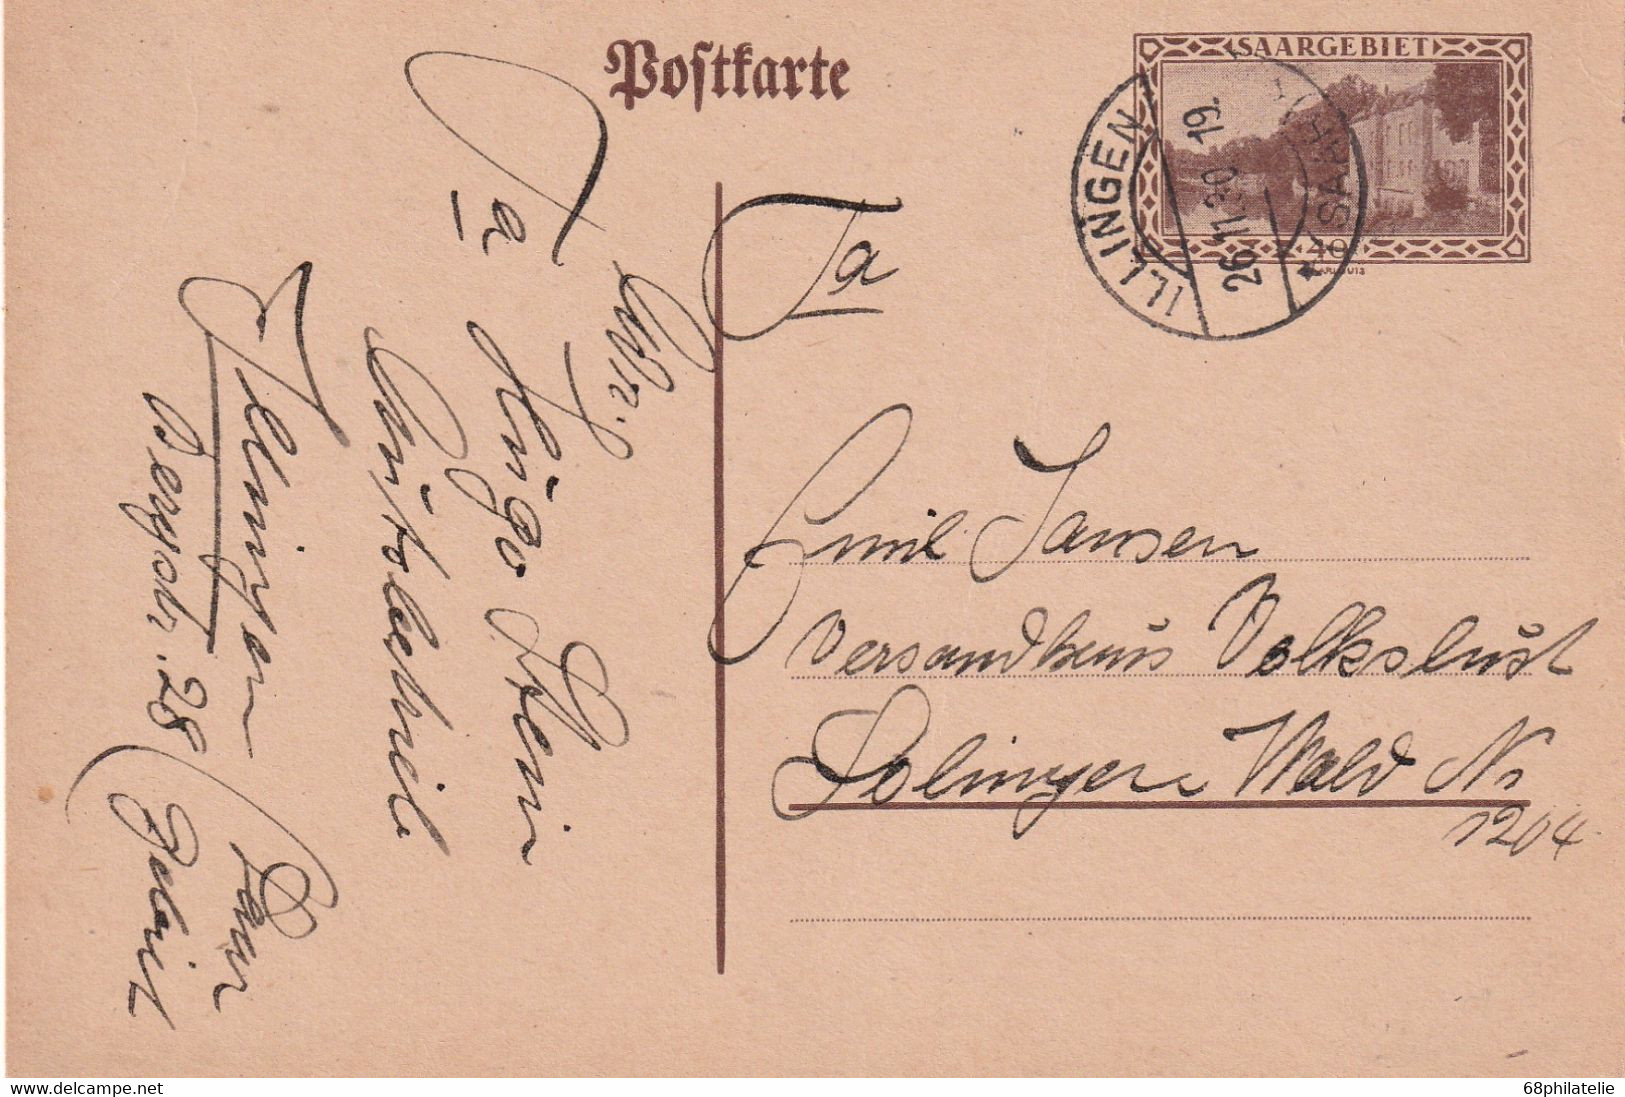 Postkarte
SAARGEBIET
40
ILLINGEN (SAAR)
26.11.30. 19.
Fa
Emil Jansen
Versandhaus Volkslust
Solingen Wald Nr
1204
Abs.
Fa Hugo Klein
Illingen
Bergstr. 28 (Saar
Gebiet
68philatelie